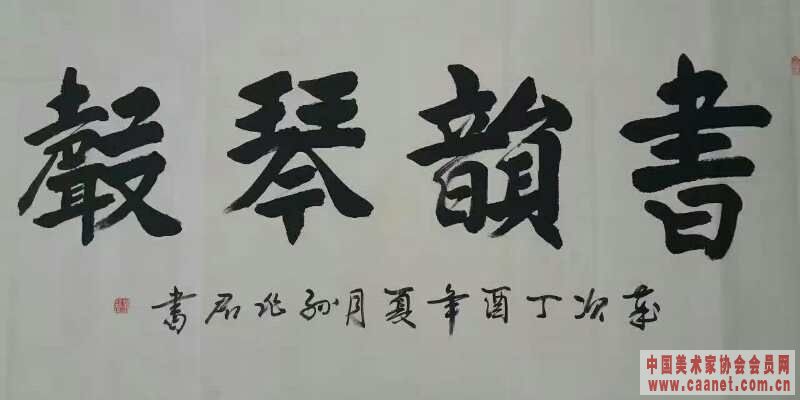 書韻琴聲
歲次丁酉年夏月孙兆君書
中国美术家协会会员网
www.caanet.com.cn